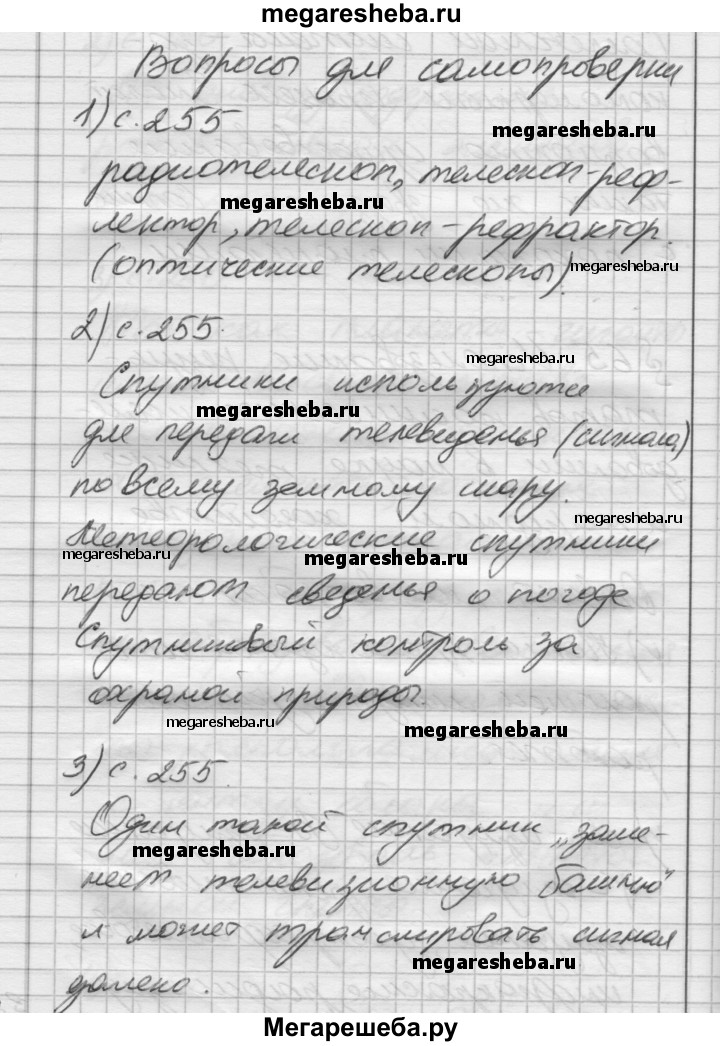 megaresheba.ru
Вопросы для самопроверки
1) с. 255
megaresheba.ru
радиотелескоп, телескоп-реф-
megaresheba.ru
лектор, телескоп-рефрактор.
(оптические телескопы).
megaresheba.ru
2) с. 255.
megaresheba.ru
Спутники используются
megaresheba.ru
для передачи телевиденья (сигнала)
по всему земному шару.
megaresheba.ru
Метеорологические спутники
megaresheba.ru
megaresheba.ru
передают сведенья о погоде
Спутниковый контроль за
охраной природы.
megaresheba.ru
megaresheba.ru
3) с. 255
Один такой спутник „заме-
megaresheba.ru
няет телевизионную башню"
и может транслировать сигнал
megaresheba.ru
далеко.
Мегарешеба.ру